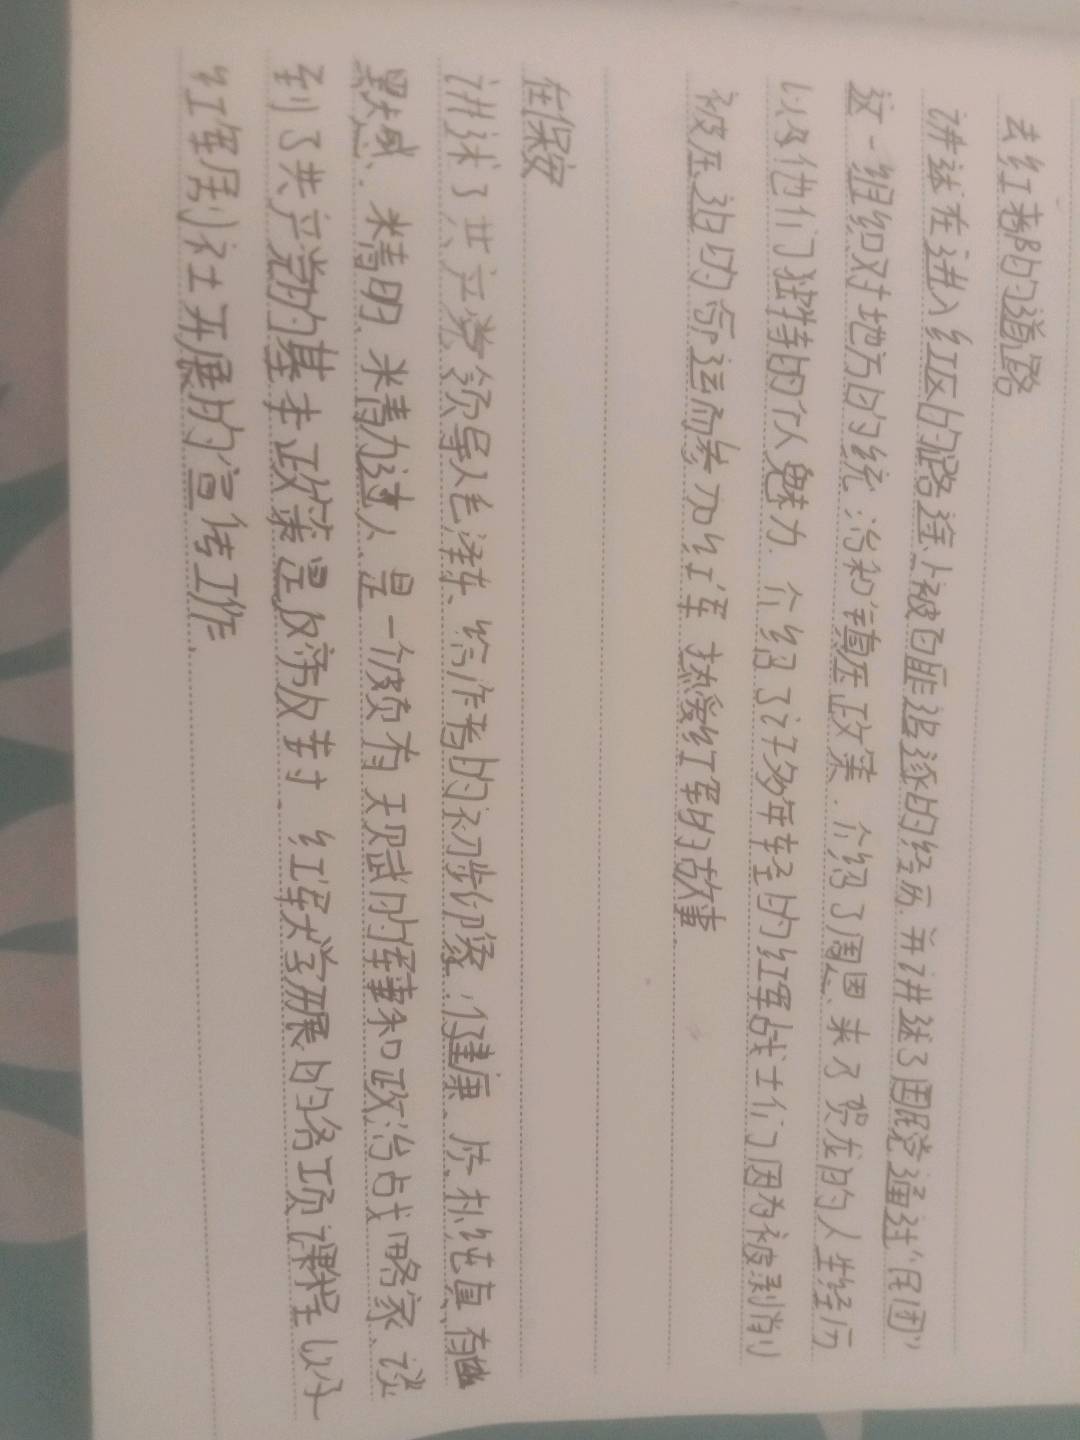 去红都的道路
讲述在进入红区的路途上被白匪追逐的经历.并讲述了国民党通过“民团”
这一组织对地方的统治和镇压政策.介绍了周恩来及贺龙的人生经历
以及他们独特的个人魅力.介绍了许多年轻的红军战士们因为被剥削
被压迫的命运而参加红军 热爱红军的故事.
在保安
讲述了共产党领导人毛泽东、给作者的初步印象:健康、质朴纯真、有幽
默感、精明、精力过人、是一个颇有天赋的军事和政治战略家、谈
到了共产党的基本政策是反帝反封、红军大学开展的各项课程以及
红军剧社开展的宣传工作.